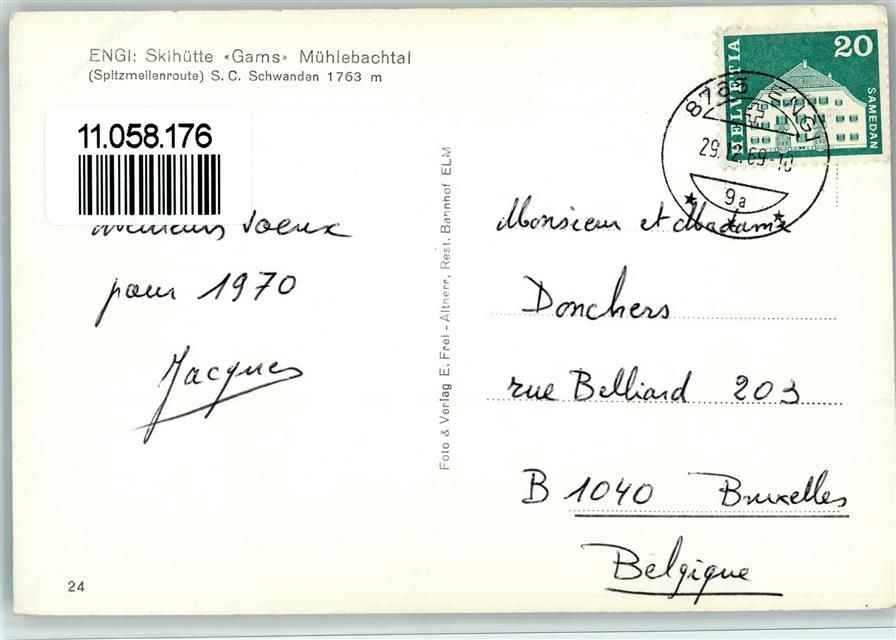 ENGI: Skihütte «Gams» Mühlebachtal
(Spitzmeilenroute) S. C. Schwanden 1763 m
11.058.176
Meilleurs voeux
pour 1970
Jacques
24
Foto & Verlag E. Frei - Altherr, Rest. Bahnhof ELM
HELVETIA
20
SAMEDAN
8765 ENGI
29.12.69-10
9a
Monsieur et Madame
Donckers
rue Belliard 203
B 1040 Bruxelles
Belgique